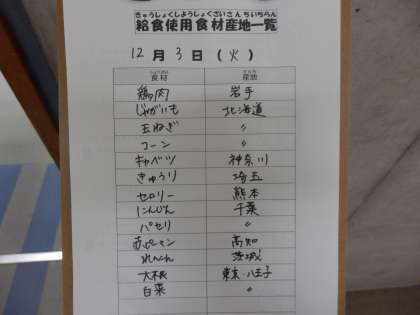 きゅうしょくしようしょくざいさんちいちらん
給食使用食材産地一覧
12月3日(火)
食材 産地
鶏肉 岩手
じゃがいも 北海道
玉ねぎ 〃
コーン 〃
キャベツ 神奈川
きゅうり 埼玉
セロリー 熊本
にんじん 千葉
パセリ 〃
赤ピーマン 高知
れんこん 茨城
大根 東京・八王子
白菜 〃